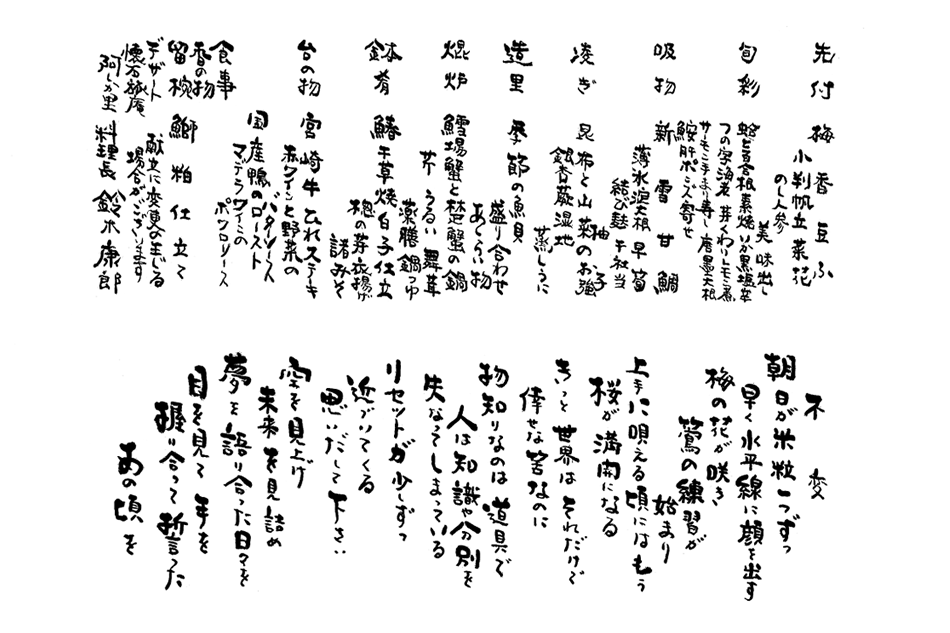 先付 梅香豆ふ
小判帆立 菜花
のし人参
美味出し
旬彩 蛤と百合根素焼 いか黒塩辛
つの字海老 芽くわいトモ煮
サーモン手まり寿し 唐墨大根
鮟肝ポン酢寄せ
吸物 新雪甘鯛
薄氷淀大根 早筍
結び麩 干社当
柚子
凌ぎ 昆布と山菜のお強
銀杏 蕨 湿地
蒸しうに
造里 季節の魚貝
盛り合わせ
あしらい物
焜炉 鱈場蟹と楚蟹の鍋
芹 うるい 舞茸
薬膳鍋つゆ
鉢肴 鰆千草焼 白子仕立
楤の芽衣揚げ
諸みそ
台の物 宮崎牛ひれステーキ
赤ワインと野菜の
バターソース
国産鴨のロースト
マデラワインの
ポクロソース
食事
香の物
留椀 鰤粕仕立て
デザート
献立に変更が生じる
場合がございます
懐石旅庵
阿しか里 料理長 鈴木康郎
不変
朝日が米粒一つずつ
早く水平線に顔を出す
梅の花が咲き
鶯の練習が
始まり
上手に唄える頃にはもう
桜が満開になる
きっと世界はそれだけで
倖せな筈なのに
物知りなのは道具で
人は知識や分別を
失なってしまっている
リセットが少しずつ
近づいてくる
思いだして下さい
空を見上げ
未来を見詰め
夢を語り合った日々を
目を見て手を
握り合って誓った
あの頃を